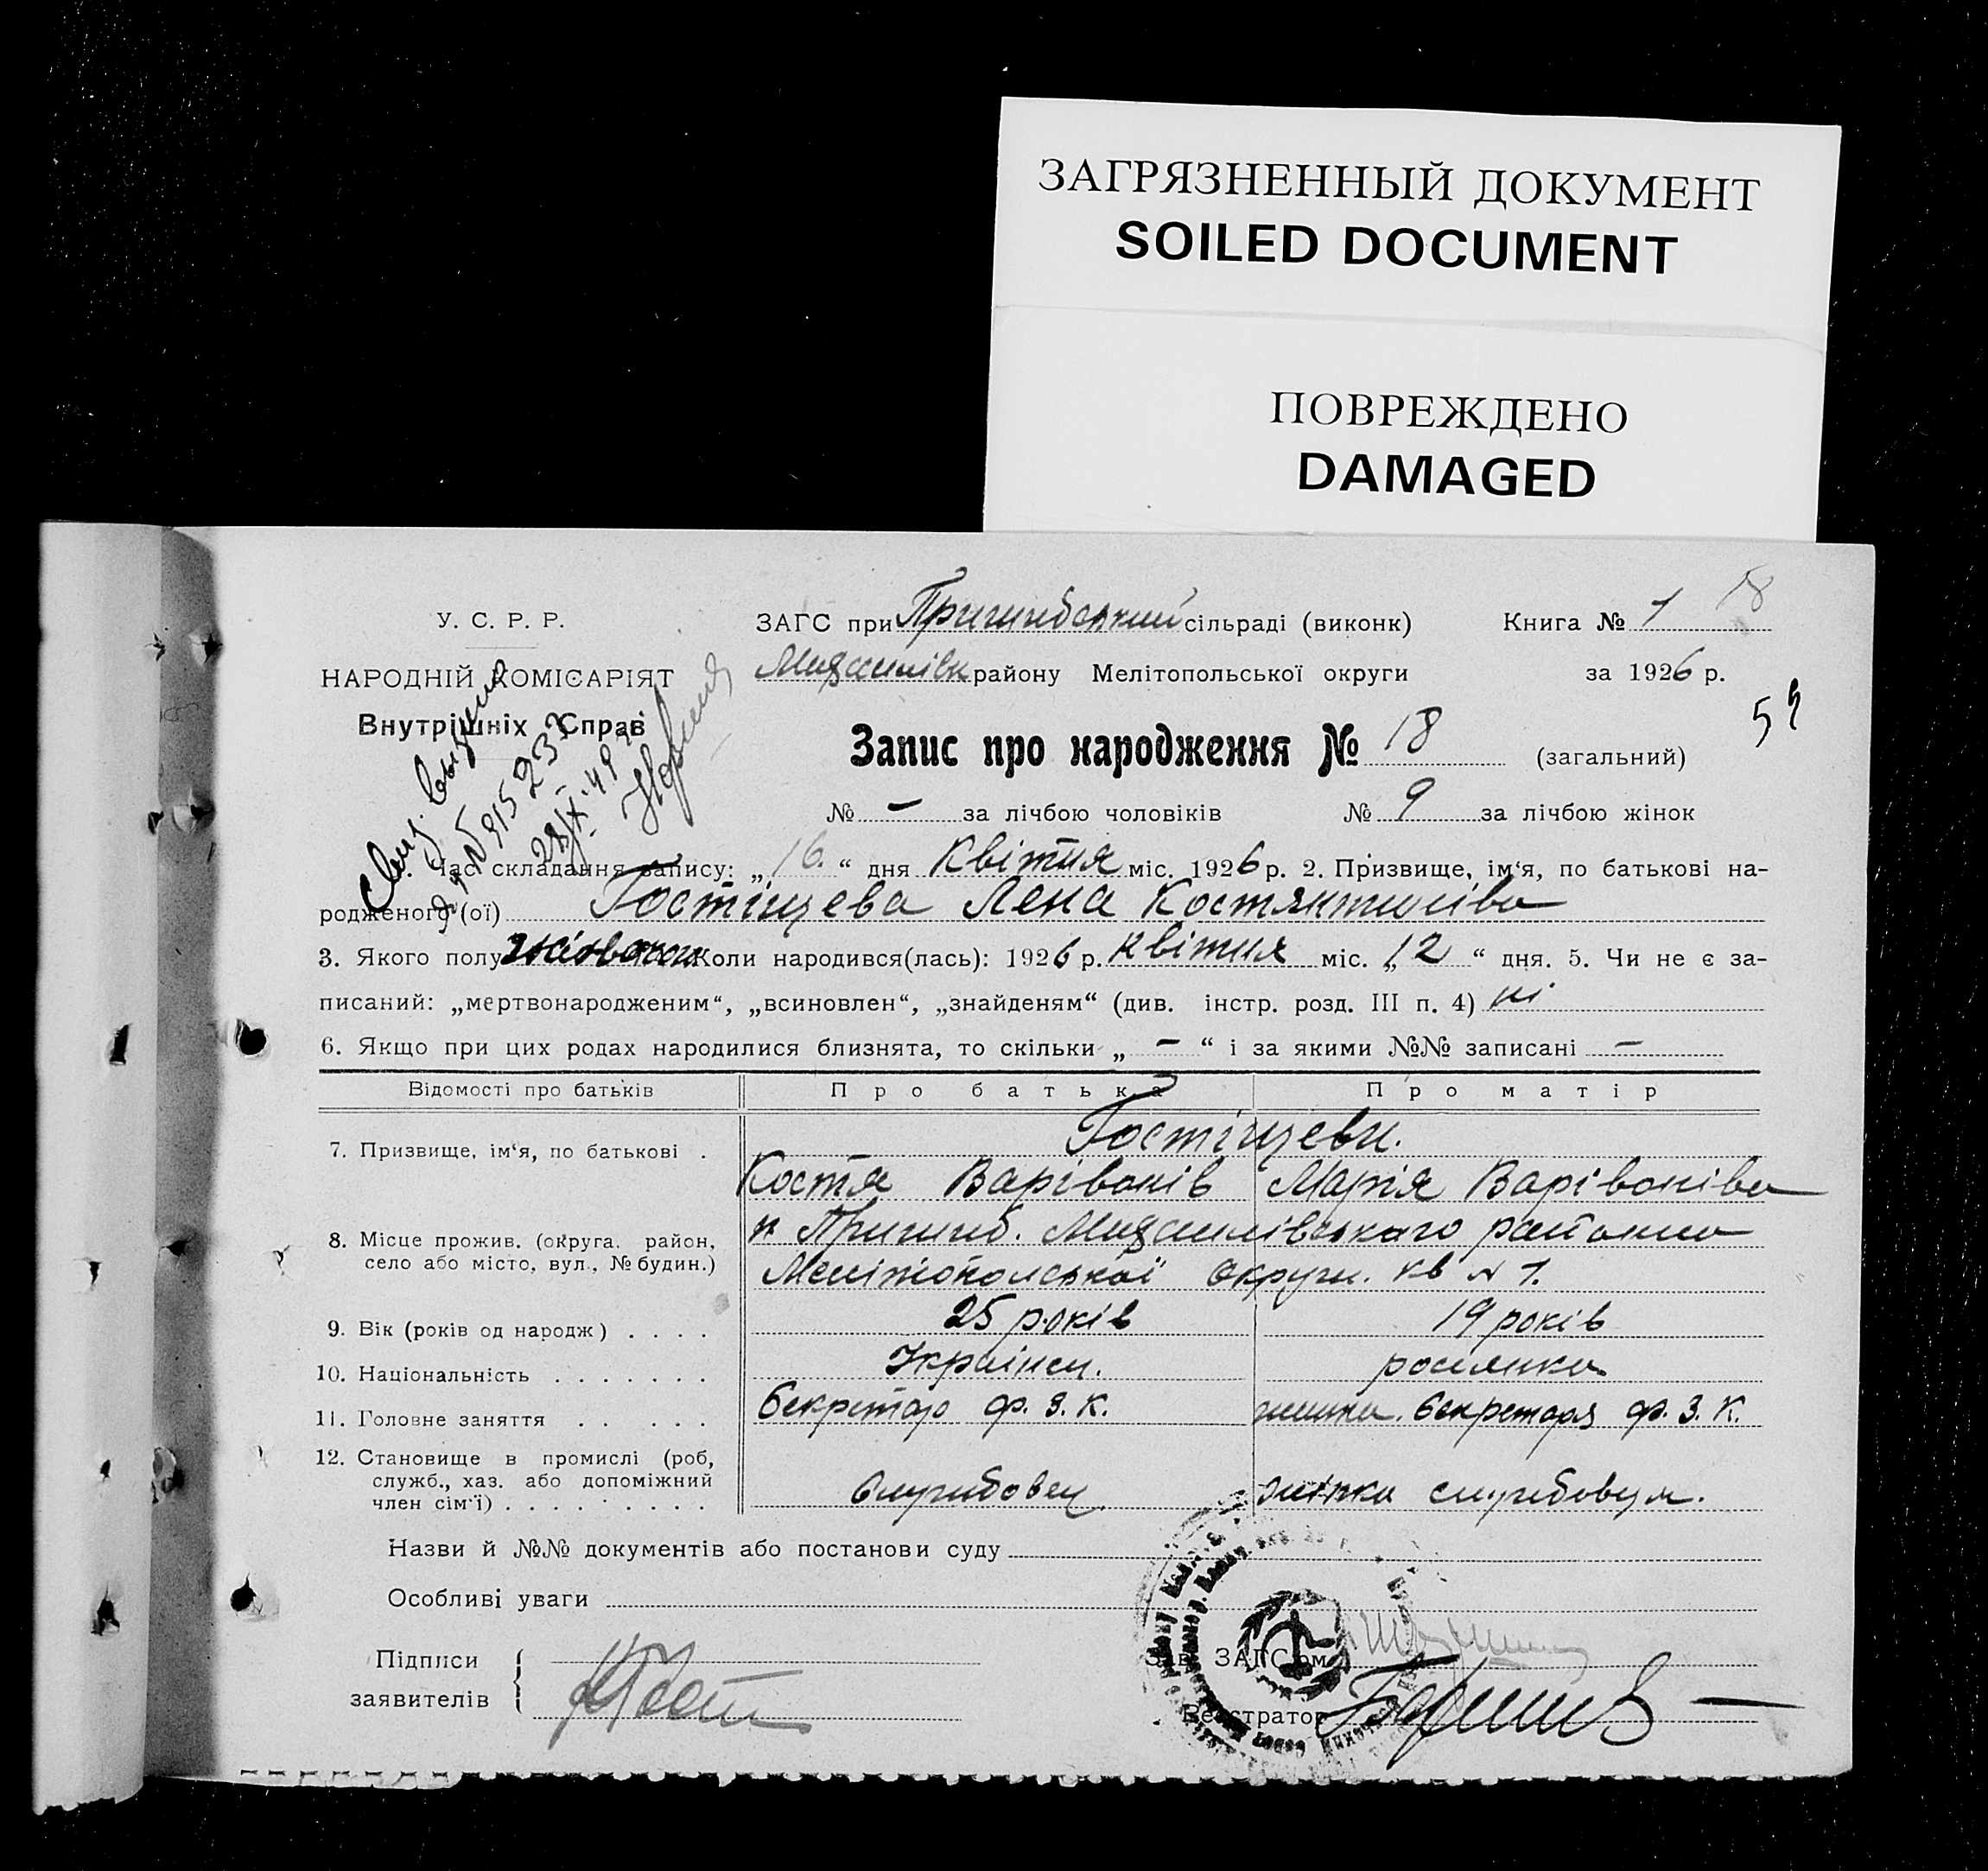 ЗАГРЯЗНЕННЫЙ ДОКУМЕНТ
SOILED DOCUMENT
ПОВРЕЖДЕНО
DAMAGED
У. С. Р. Р.
НАРОДНІЙ КОМІСАРІЯТ
Внутрішніх Справ
ЗАГС при Пришибський сільраді (виконк)
Книга № 1
18
району Мелітопольської округи
за 1926 р.
Запис про народження № 18 (загальний)
№ – за лічбою чоловіків № 9 за лічбою жінок
час складання запису: „16.“ дня Квітня міс. 1926 р. 2. Призвище, ім‘я, по батькові на-
родженого (ої) Гостіщева Лена Костянтинівна
3. Якого полу жіночої Коли народився(лась): 1926 р. квітня міс. „12“ дня. 5. Чи не є за-
писаний: „мертвонародженим“, „всиновлен“, „знайденям“ (див. інстр. розд. III п. 4) ні
6. Якщо при цих родах народилися близнята, то скільки „ – “ і за якими №№ записані –
Відомості про батьків Про батька Про матір
Гостіщеви.
7. Призвище, ім‘я, по батькові .
Костя Варівонів Марія Варівонівна
8. Місце прожив. (округа. район, село або місто, вул., № будин.)
Пришиб. Михайлівського району
Мелітопольської округи. кв № 1.
9. Вік (років од народж) . . . . 25 років 19 років
10. Національність . . . . . . . Українец. росіянка
11. Головне заняття . . . . . Секретар ф. З. К. жінка. Секретаря ф. З. К.
12. Становище в промислі (роб, служб., хаз. або допоміжний член сім‘ї) . . . . . . . . . Службовец. жінка службовця.
Назви й №№ документів або постанови суду
Особливі уваги
Підписи
заявителів
Зав. ЗАГС‘ом
Реєстратор